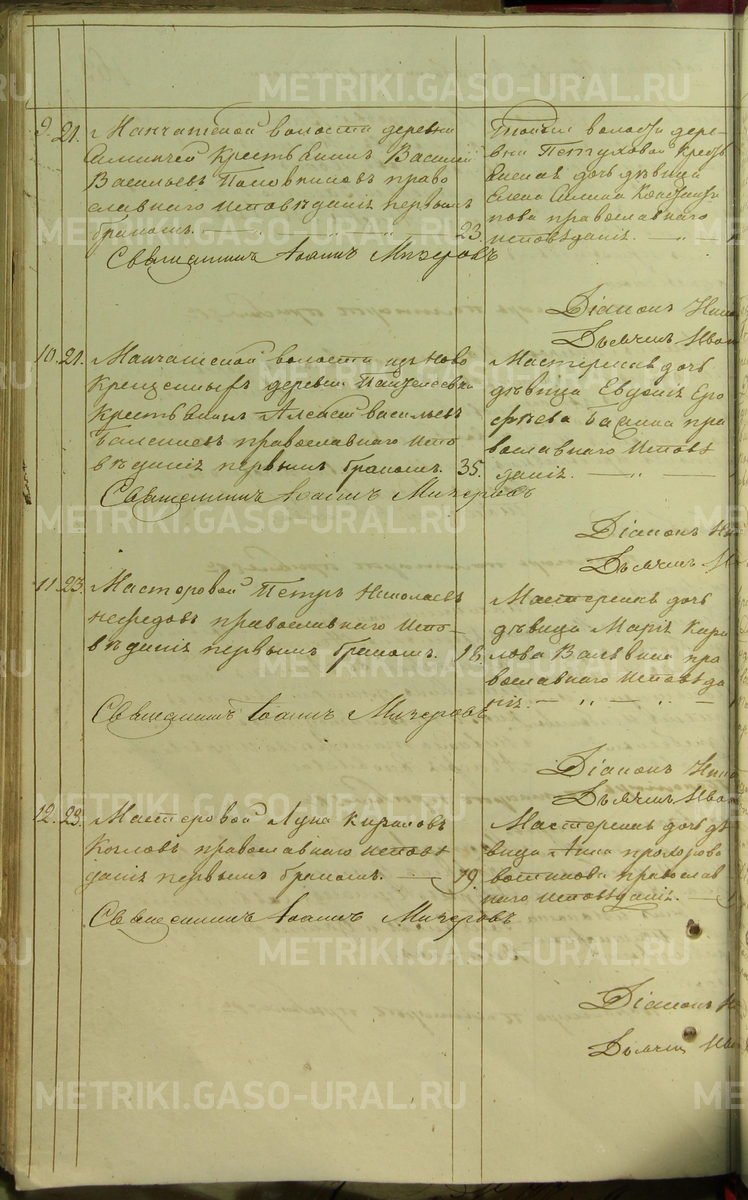 9. 21. Манчажской волости деревни
крестьянинъ Василий
Васильевъ Половниковъ право
славнаго исповѣданія первымъ
бракомъ. 23.
Священникъ Іоаннъ Мичеровъ
волости дере-
вни Петуховой кресть
дочь дѣвица
Елена
нова православнаго
исповѣданія.
Діаконъ
Дьячекъ Иван
10. 21. Манчажской волости изъ ново
крещенныхъ деревни
крестьянинъ Алексей Васильевъ
православнаго испо
вѣданія первымъ бракомъ. 35.
Священникъ Іоаннъ Мичеровъ
Мастерская дочь
дѣвица Евдокія Еро
фѣева пра
вославнаго исповѣ
данія.
Діаконъ
Дьячекъ
11. 23. Мастеровой Петръ Николаевъ
Нефедовъ православнаго испо-
вѣданія первымъ бракомъ. 18.
Священникъ Іоаннъ Мичеровъ
Мастерская дочь
дѣвица Марія Кири
лова пра
вославнаго исповѣда
нія.
Діаконъ
Дьячекъ Иван
12. 23. Мастеровой Лука Кириловъ
Козловъ православнаго исповѣ
данія первымъ бракомъ. 19.
Священникъ Іоаннъ Мичеровъ
Мастерская дочь дѣ
вица Анна Прохорова
Вотинова православ
наго исповѣданія.
Діаконъ
Дьячекъ
METRIKI.GASO-URAL.RU